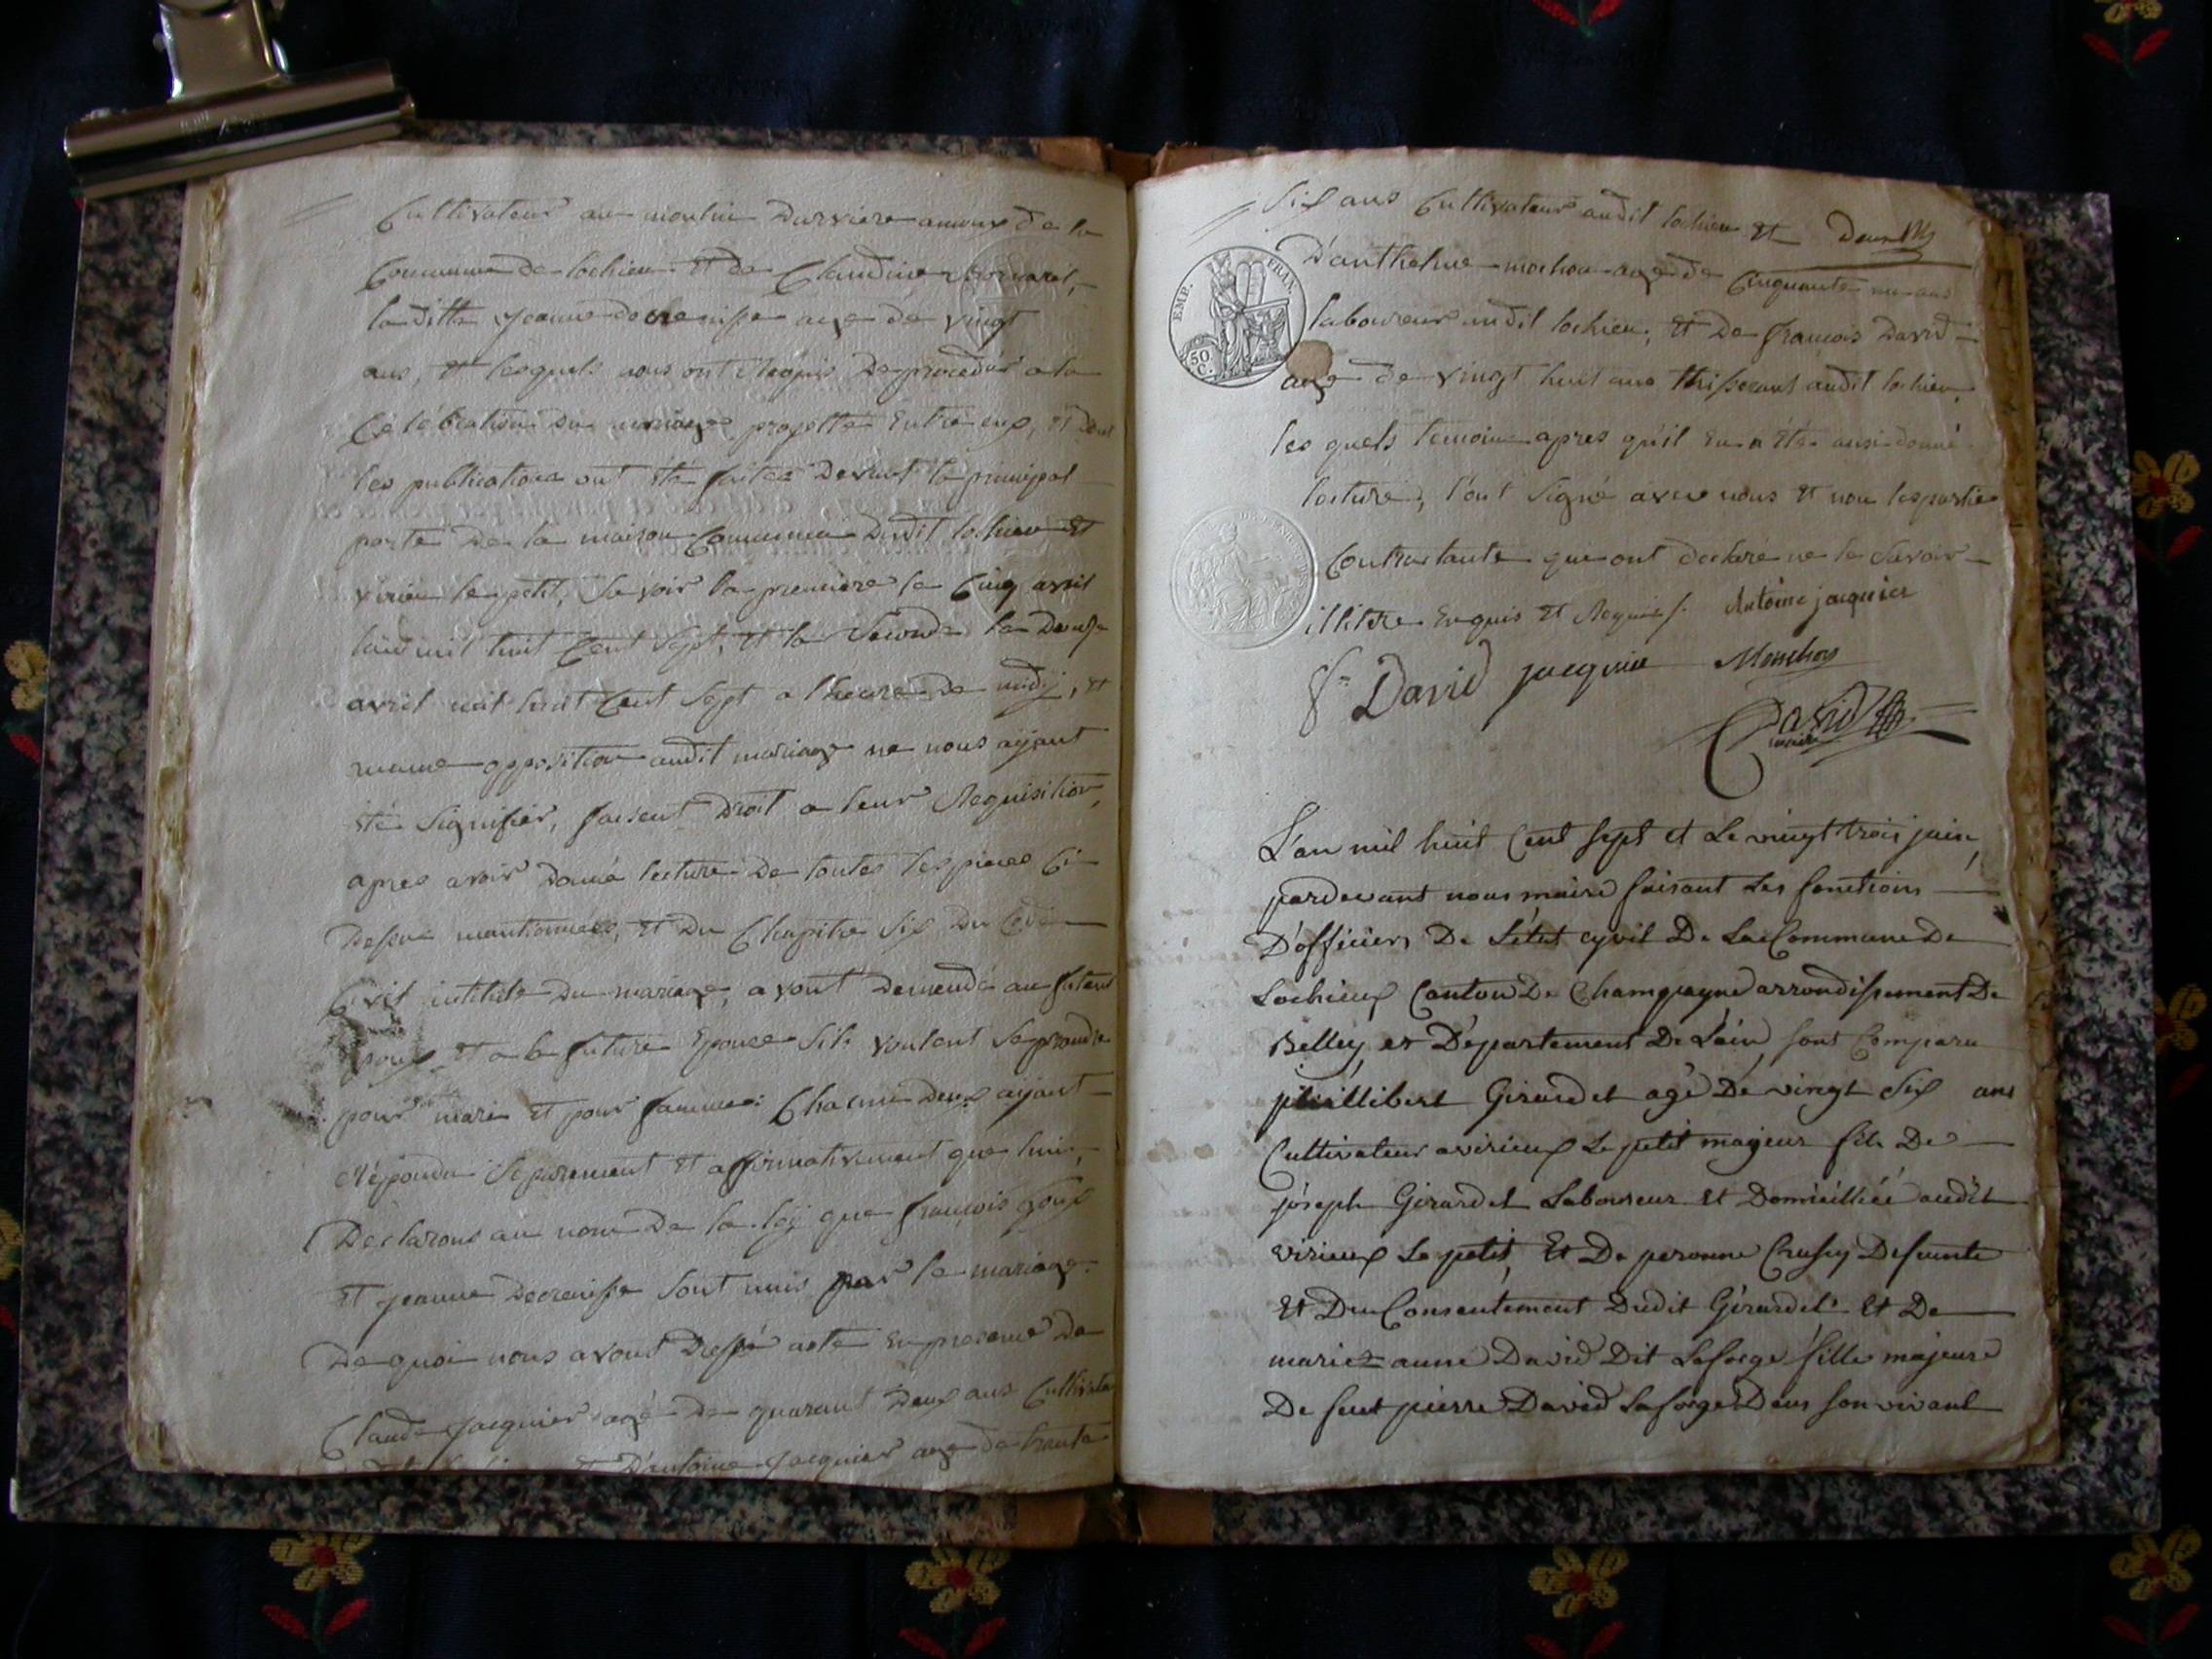 Cultivateur au moulin Darviere annexe de la
Commune de lochieu et de Claudine
la ditte jeanne decrenisse age de vingt
ans, et lesquels nous ont requis De proceder a la
Célébration du mariage projetté Entre eux, et dont
les publications ont été faites Devant la principal
porte De la maison Commune Dudit lochieu et
virieu le petit, Savoir la premiere le Cinq avril
mil huit Cent Sept, et la Seconde le Douze
avril mil huit Cent Sept a l'heure De midy, et
aucune opposition audit mariage ne nous ayant
été Signifier, faisant Droit a leur Requisition,
apres avoir Donné lecture De toutes les pieces Ci
Dessus mantionnees, et Du Chapitre Six Du Code
Civil intitule Du mariage, avont Demendé au futeur
Epoux et a la future Epouse Sils voulent Se prendre
pour mari et pour famme: Chacun Deux ayant
Répondu Séparement et affirmativement que hui,
Declarons au nom De la loy que françois goux
et jeanne Decrenisse Sont unis par le mariage.
De quoi nous avont Dressé acte En presence De
Claude Jacquier agé De quarant Deux ans Cultivateur
et D'antoine Jacquier age de trante
Six ans Cultivateur audit lochieu et
D'anthelme mochon age de Cinquante un ans
laboureur audit lochieu, et De françois David
age de vingt huit ans thisserant audit lochieu,
les quels temoins apres qu'il En a été ausi donné
lecture, l'ont Signé avec nous et non les partie
Contractante qui ont declaré ne le Savoir
illitere Enquis et Requis /. Antoine jacquier
fs David jacquier Monchon
David
maire
EMP. FRAN.
50 C.
L'an mil huit Cent Sept et Le vingt trois juin,
pardevant nous maire faisant Les fonctions
D'officiers De L'état cyvil De La Commune De
Lochieux Canton De Champagne arrondissement De
Belley et Département De L'ain, sont Comparu
phillibert Girardet agé De vingt Six ans
Cultivateur avirieux Le petit majeur fils De
joseph Girardet Laboureur et Domicilié audit
virieux Le petit, Et De peronne Crussy Defeunte
Et Du Consentement Dudit Girardet. Et De
marie anne David Dit Laforge fille majeure
De feut pierre David Laforge Dans son vivant